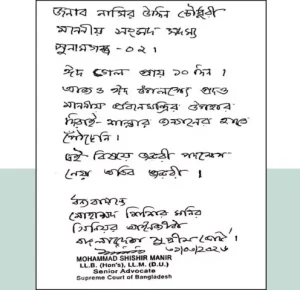 জনাব নাসির উদ্দিন চৌধুরী
মাননীয় সংসদ সদস্য
সুনামগঞ্জ -০২।
ঈদ গেল প্রায় ১০ দিন।
আজও ঈদ উপলক্ষ্যে প্রদত্ত
মাননীয় প্রধানমন্ত্রির উপহার
দিরাই-শাল্লার জনগনের হাতে
পৌঁছেনি।
এই বিষয়ে জরুরী পদক্ষেপ
নেয়া অতিব জরুরী।
ধন্যবাদান্তে
মোহাম্মদ শিশির মনির
সিনিয়র আইনজীবী
বাংলাদেশ সুপ্রীম কোর্ট।
MOHAMMAD SHISHIR MANIR
LL.B. (Hon's), LL.M. (D.U.)
Senior Advocate
Supreme Court of Bangladesh